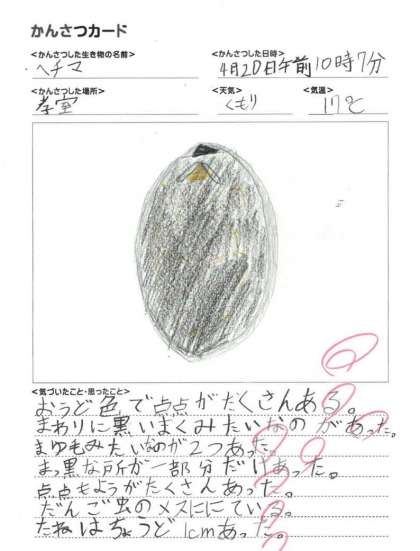 かんさつカード
<かんさつした生き物の名前> <かんさつした日時>
ヘチマ 4月20日午前10時7分
<かんさつした場所> <天気> <気温>
孝室 くもり 17℃
<気づいたこと・思ったこと>
おうど色で点点がたくさんある。
まわりに黒いまくみたいなのがあった。
まゆもみたいなのが2つあった。
まっ黒な所が一部分だけあった。
点点もようがたくさんあった。
だんご虫のメスににている。
たねはちょうど1cmあった。